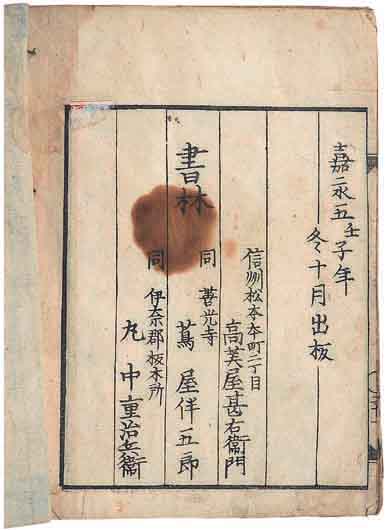 嘉永五壬子年
冬十月出板
信州松本本町二丁目
高美屋甚右衛門
書林
同 善光寺
蔦屋伴五郎
同 伊奈郡板木所
丸中重治兵衛